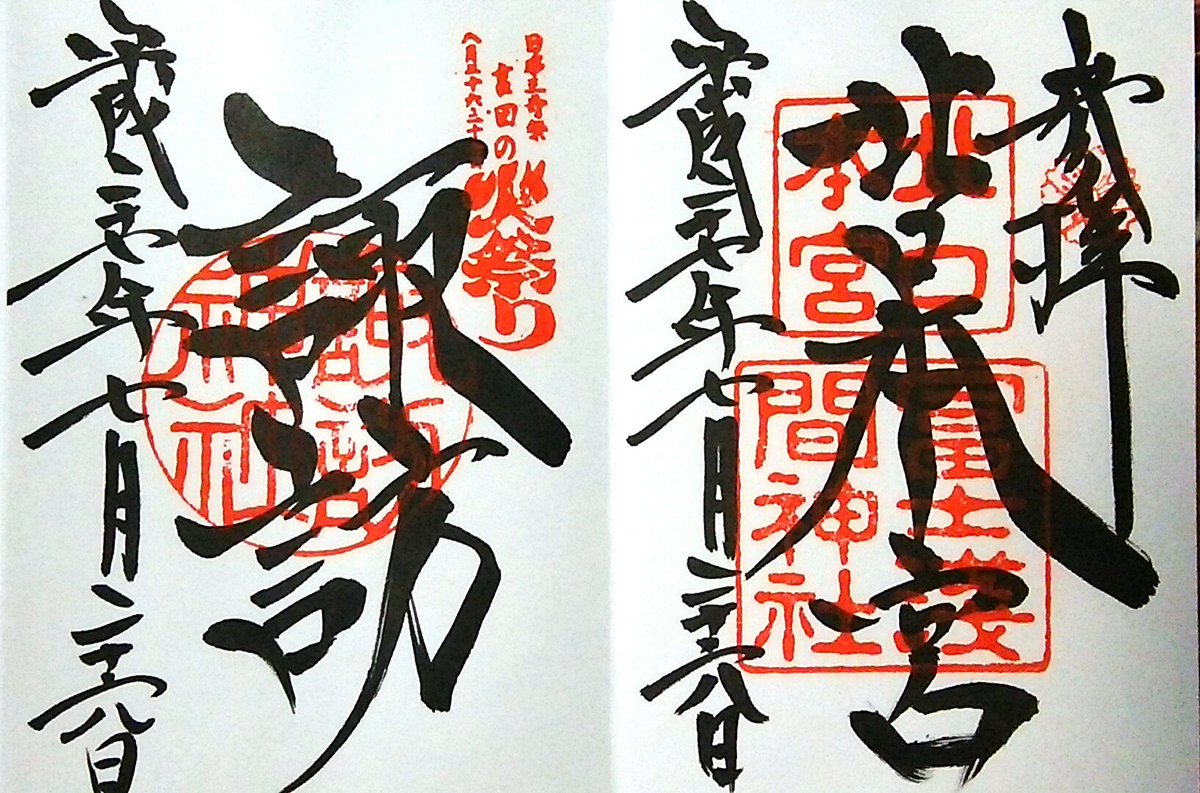 奉拝
北口本宮
北口
本宮
冨士浅
間神社
平成二十七年七月二十八日
日本三奇祭
吉田の火祭り
八月二十六・二十七日
諏訪
平成二十七年七月二十八日